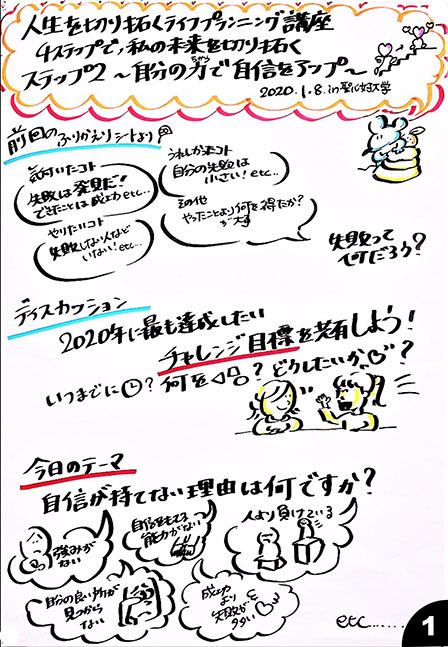 人生を切り拓くライフプランニング講座
4ステップで、私の未来を切り拓く
ステップ2 〜自分の力で自信をアップ〜
ちから
2020.1.8.in 聖心女子大学
前回のふりかえりシートより
気付いたコト
失敗は発見だ!
できたことは成功 etc...
うれしかったコト
自分の失敗は
小さい! etc...
やりたいコト
失敗しない人など
いない! etc...
その他
やったことより何を得たか?
が大事
失敗って
何だろう?
ディスカッション
2020年に最も達成したい
チャレンジ目標を共有しよう!
いつまでに?何を?どうしたいか?
今日のテーマ
自信が持てない理由は何ですか?
強みが
ない
自信をもてる
能力がない
人より負けている
自分の良い所が
見つから
ない
成功
より
失敗が
多い
etc......
1